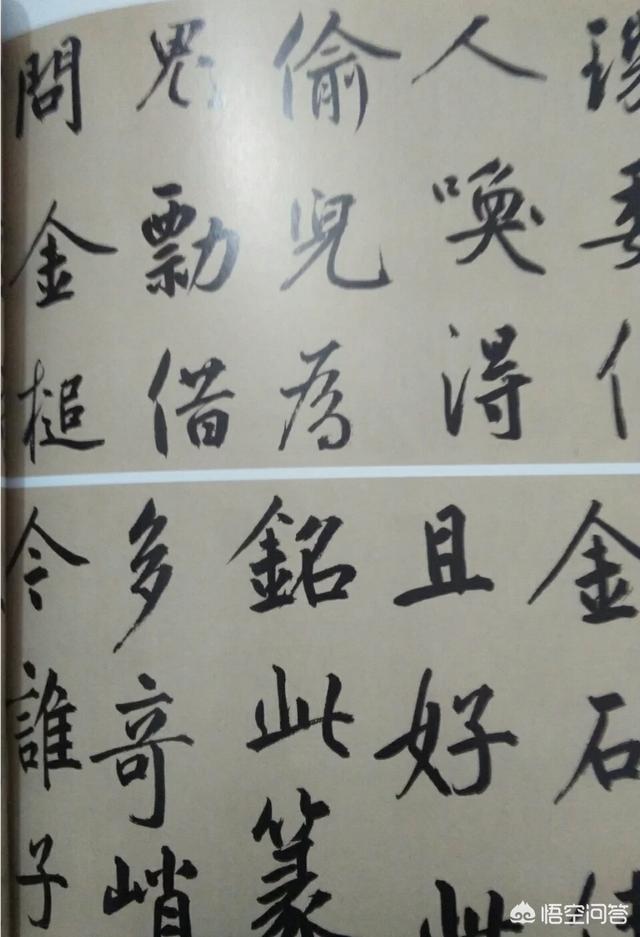 人喚得
偷兒為
勡借
問金槌
金石
且好此
銘此篆
多竒峭
今誰子
悟空问答